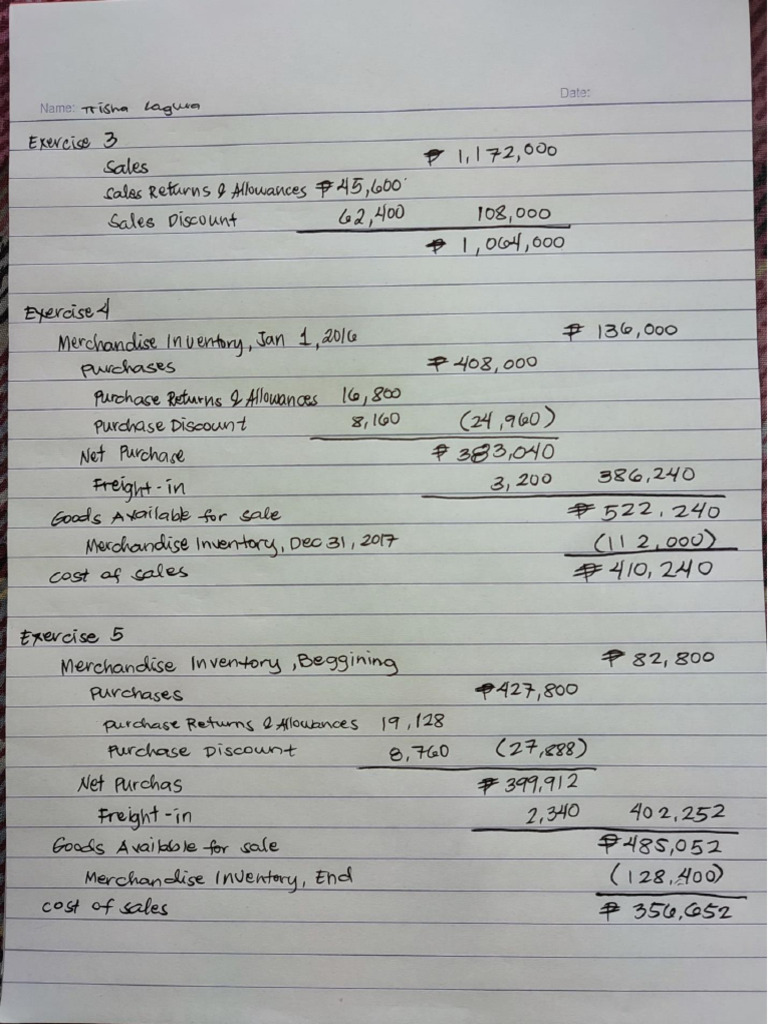 Name: Trisha Lagura Date:
Exercise 3
Sales ₱ 1,172,000
Sales Returns & Allowances ₱45,600
Sales Discount 62,400 108,000
₱ 1,064,000
Exercise 4
Merchandise Inventory, Jan 1, 2016 ₱ 136,000
Purchases ₱ 408,000
Purchase Returns & Allowances 16,800
Purchase Discount 8,160 (24,960)
Net Purchase ₱ 383,040
Freight-in 3,200 386,240
Goods Available for sale ₱ 522,240
Merchandise Inventory, Dec 31, 2017 (112,000)
cost of sales ₱ 410,240
Exercise 5
Merchandise Inventory, Beggining ₱ 82,800
Purchases ₱427,800
purchase Returns & Allowances 19,128
Purchase Discount 8,760 (27,888)
Net Purchas ₱ 399,912
Freight-in 2,340 402,252
Goods Available for sale ₱485,052
Merchandise Inventory, End (128,400)
cost of sales ₱ 356,652